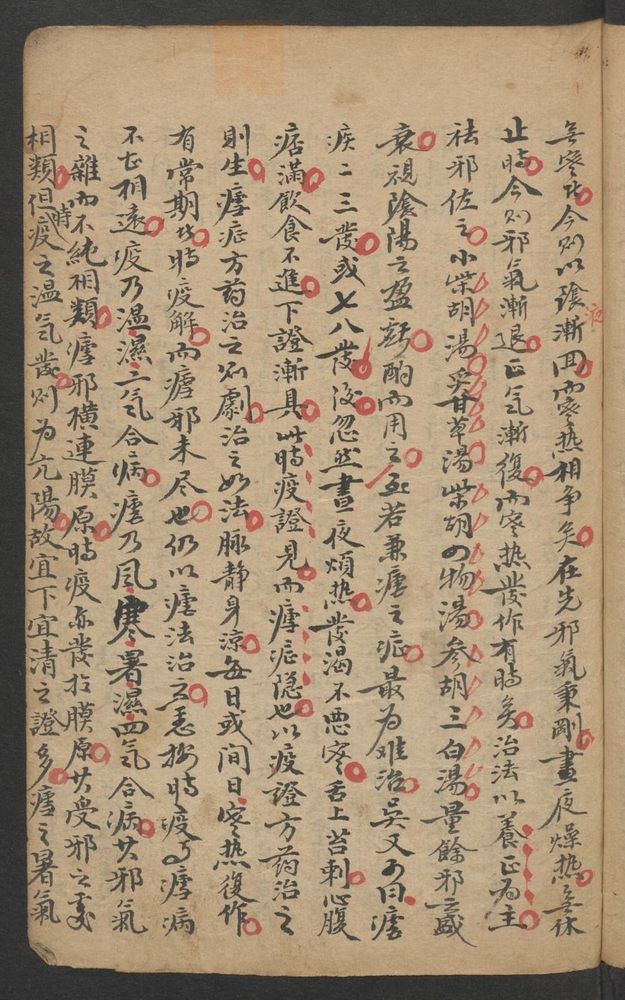 無寒也今則以陰漸囬而寒热相争矣在先邪氣秉剛晝夜燥热無休
止時今则邪氣漸退正气漸復而寒热發作有時矣治法以養正為主
祛邪佐之小柴胡湯炙甘草湯柴胡四物湯参胡三白湯量餘邪之盛
衰視陰陽之盈虧酌而用之至若兼瘧之症最为难治吴又可曰瘧
疾二三發或七八發後忽然晝夜煩热發渴不悪寒舌上苔刺心腹
痞滿飲食不進下證漸具此時疫證見而瘧症隐也以疫證方药治之
則生瘧症方药治之则劇治之如法脉静身凉每日或间日寒热復作
有常期此时疫解而瘧邪未尽也仍以瘧法治之愚按时疫与瘧病
不甚相遠疫乃温濕二气合病瘧乃风寒暑濕四气合病其邪氣
之雜而不純相類瘧邪横連膜原時疫亦發於膜原其受邪之處
相類但時疫之温气發则为亢陽故宜下宜清之證多瘧之暑氣